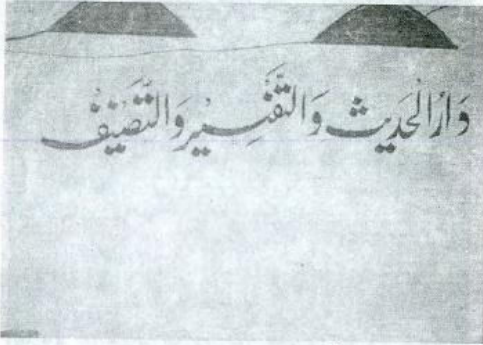 دَارُالْحَدِيث وَالتَّفْسِيْر وَالتَّصْنِيْفُ